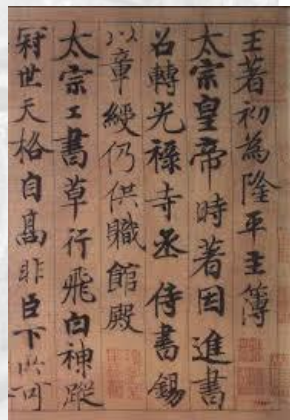 王著初為隆平主簿
太宗皇帝時著因進書
召轉光祿寺丞侍書錫
以章綬仍供職館殿
太宗工書草行飛白神蹤
冠世天格自高非臣下所可